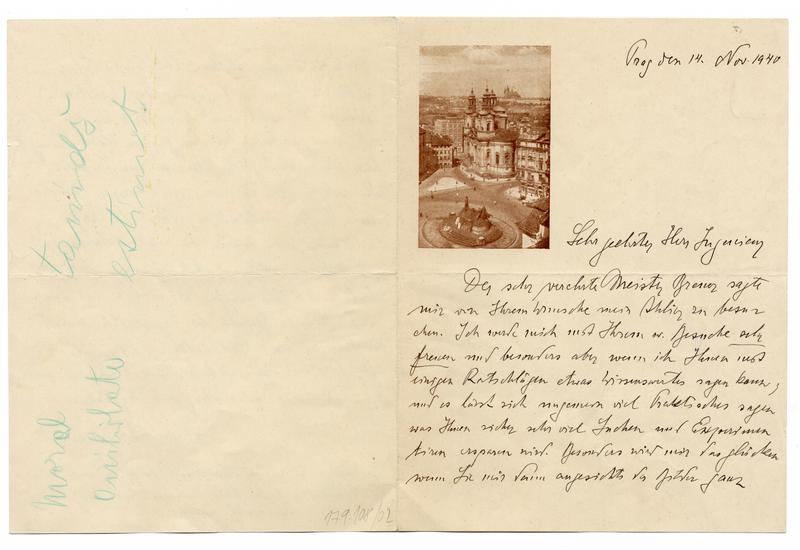 Prag den 14. Nov. 1940
Sehr geehrter Herr Ingenieur
Der sehr verehrte Meister sagte
mir von Ihrem Wunsche mein Atelier zu besu-
chen. Ich werde mich mit Ihrem w. Besuche sehr
freuen und besonders aber wenn ich Ihnen mit
einigen Ratschlägen etwas Wissenswertes sagen kann,
und es lässt sich ungemein viel Praktisches sagen
was Ihnen sicher sehr viel Suchen und Experimen
tiren ersparen wird. Besonders wird mir das glücken
wenn Sie mir dann angesichts der Bilder ganz
estimet
moral
179.108/02